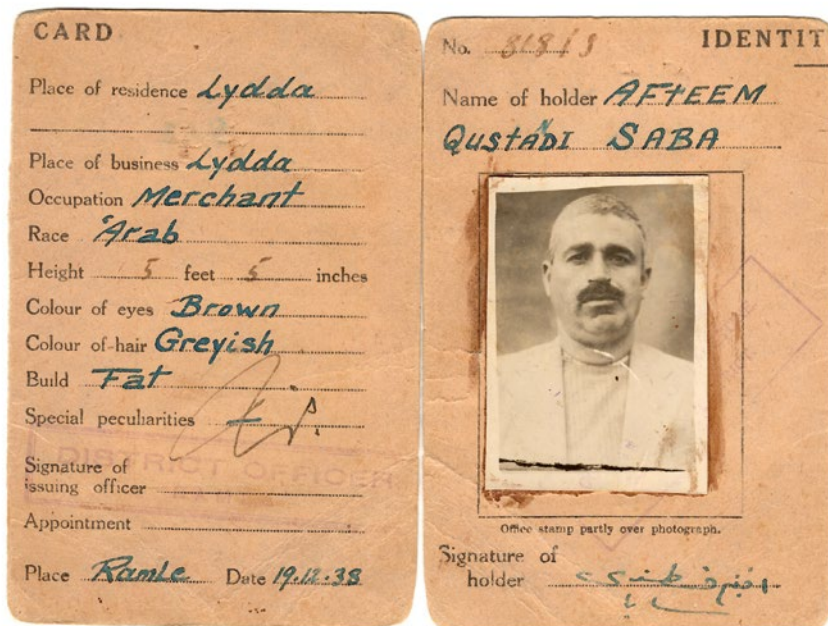 CARD
Place of residence Lydda
Place of business Lydda
Occupation Merchant
Race Arab
Height 5 feet 5 inches
Colour of eyes Brown
Colour of hair Greyish
Build Fat
Special peculiarities —
DISTRICT OFFICER
Signature of
issuing officer
Appointment
Place Ramle Date 19.12.38
No. IDENTIT
Name of holder AFTEEM
QUSTANDI SABA
Office stamp partly over photograph.
Signature of
holder